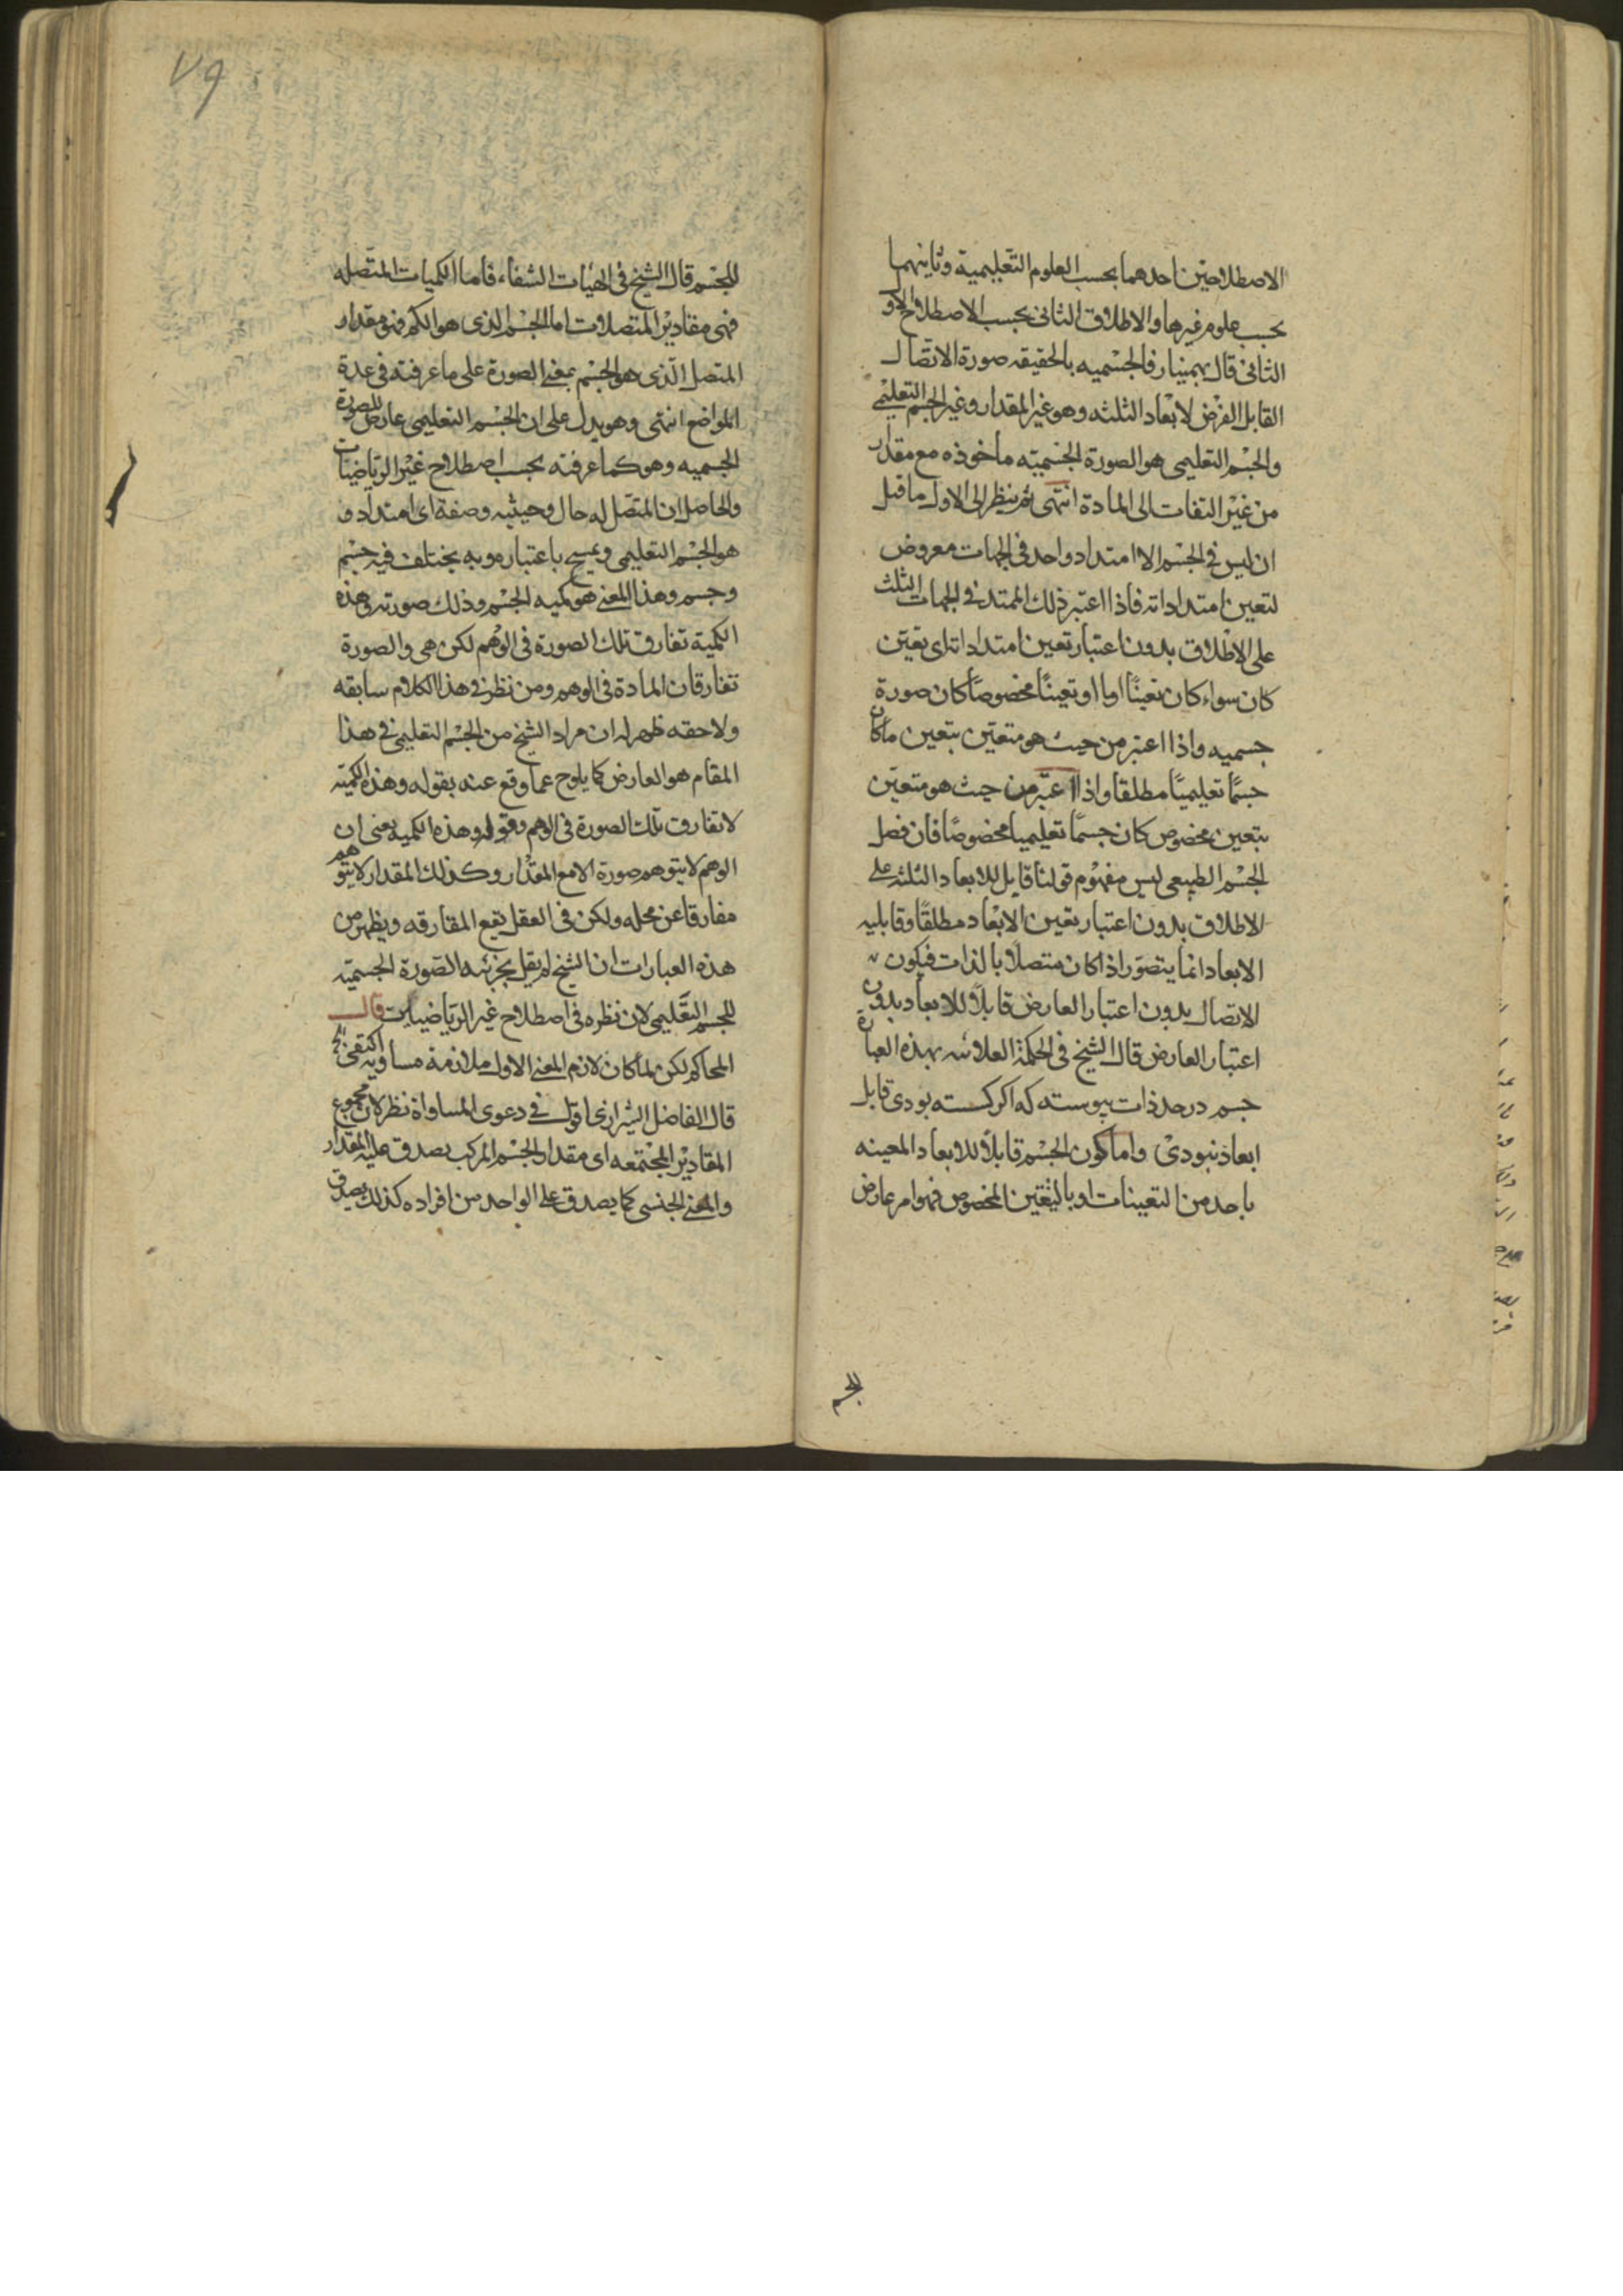 الاصطلاحين احدهما بحسب العلوم التعليمية وثانيهما
بحسب علوم غيرها والاطلاق الثانى بحسب الاصطلاح الاو
الثانى قال بهمنيار فالجسميه بالحقيقه صورة الاتصال
القابل لفرض الابعاد الثلثه وهو غير المقدار وغير الجسم التعليمى
والجسم التعليمى هو الصورة الجسميته ماخوذه مع مقدار
من غير التفات الى المادة انتهى ثم ينظر الى الاول ما قيل
ان ليس فى الجسم الا امتداد واحد فى الجهات معروض
لتعين امتداداته فاذا اعتبر ذلك الممتد فى الجهات الثلث
على الاطلاق بدون اعتبار تعين امتداداته اى تعين
كان سواء كان تعينًا اوا او تعينًا مخصوصًا كان صورة
جسميه واذا اعتبر من حيث هو متعين بتعين ما كان
جسمًا تعليميًا مطلقا واذا اعتبر من حيث هو متعين
بتعين مخصوص كان جسمًا تعليميا مخصوصًا فان فصل
الجسم الطبيعى ليس مفهوم قولنا قابل للابعاد الثلثه على
الاطلاق بدون اعتبار تعين الابعاد مطلقًا وقابليه
الابعاد انما يتصور اذا كان متصلا بالذات فيكون
الاتصال بدون اعتبار العارض قابلًا للابعاد بدون
اعتبار العارض قال الشيخ فى الحكمة العلائيه بهذه العبارة
جسم در حد ذات پيوسته كه اكر كسسته بودى قابل
ابعاد نبودى واما كون الجسم قابلًا للابعاد المعينه
باحد من التعينات او بالتعين المخصوص فهو امر عارض
للجسم
٧٩
للجسم قال الشيخ فى الهيات الشفاء فاما الكميات المتصله
فهى مقادير المتصلات اما الجسم الذى هو الكم فهو مقدار
المتصل الذى هو الجسم بمعنى الصورة على ما عرفته فى عدة
المواضع انتهى وهو يدل على ان الجسم التعليمى عارض للصورة
الجسميه وهو كما عرفته بحسب اصطلاح غير الرياضيات
والحاصل ان المتصل له حال وحيثيه وصفة اى امتداد و
هو الجسم التعليمى ويمسح باعتباره وبه يختلف فيه جسم
وجسم وهذا المعنى هو كميه الجسم وذلك صورته وهذه
الكمية تفارق تلك الصورة فى الوهم لكن هى والصورة
تفارقان المادة فى الوهم ومن نظر فى هذا الكلام سابقه
ولاحقه ظهر له ان مراد الشيخ من الجسم التعليمى فى هذا
المقام هو العارض كما يلوح عما وقع عنه بقوله وهذه الكميته
لا تفارق تلك الصورة فى الوهم وقوله وهذه الكميه يعنى ان
الوهم لا يتوهم صورة الا مع المقدار وكذلك المقدار لا يتوهم
مفارقا عن محله ولكن فى العقل يقع المفارقه ويظهر من
هذه العبارات ان الشيخ لم يقل بجزئيه الصورة الجسميته
للجسم التعليمى لان نظره فى اصطلاح غير الرياضيات قال
المحاكم لكن لما كان لازم المعنى الاول ملازمة مساويه اكتفى به
قال الفاضل الشيرازى اقول فى دعوى المساواة نظر لان مجموع
المقادير المجتمعه اى مقدار الجسم المركب يصدق عليه المقدار
والمعنى الجنسى كما يصدق على الواحد من افراده كذلك يصدق